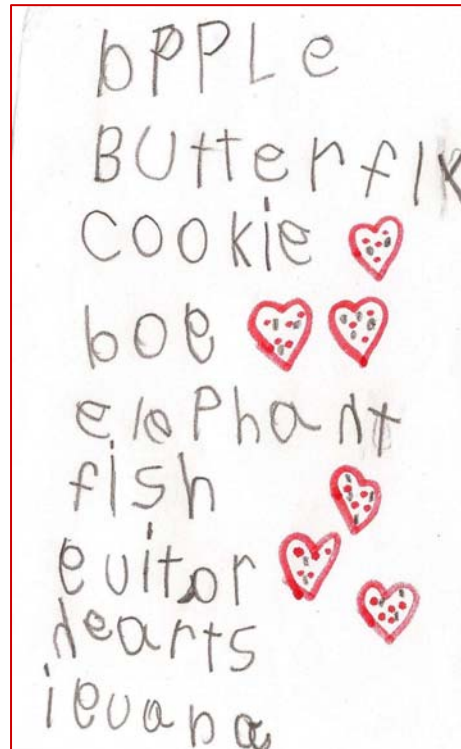 bPPLe
BUtterflk
COOkie
boe
elePhant
fish
euitor
hearts
ieuana